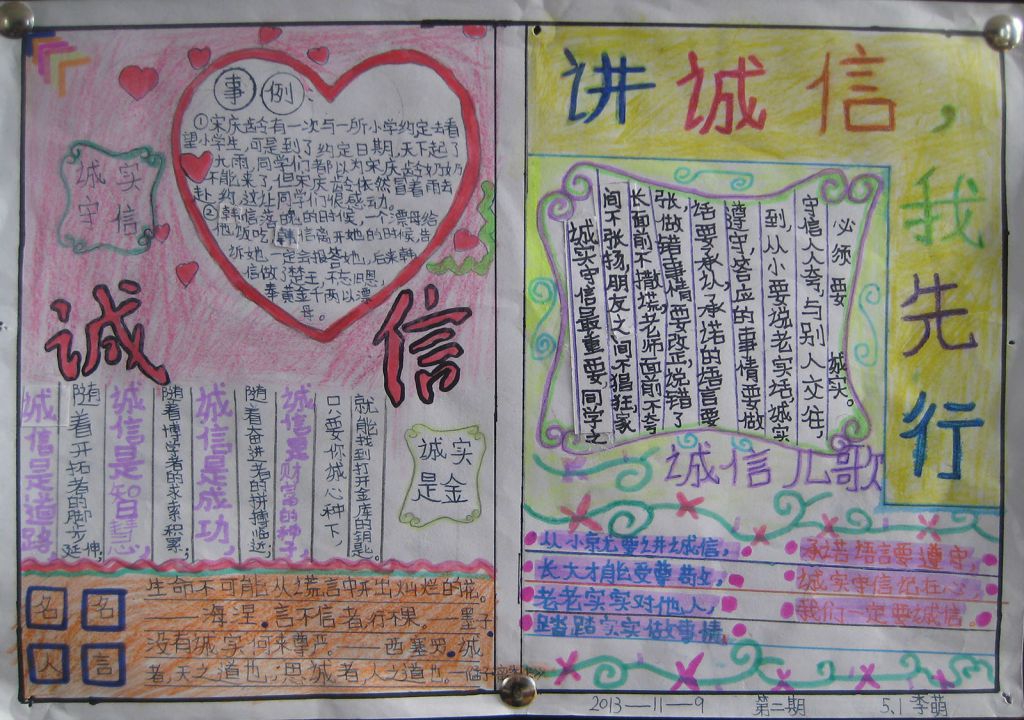 事例：
①宋庆龄有一次与一所小学约定去看
望小学生,可是到了约定日期,天下起了
大雨,同学们都以为宋庆龄奶奶
不能来了,但宋庆龄依然冒着雨去
赴约,这让同学们很感动。
②韩信落魄的时候,一个漂母给
他饭吃,韩信离开她的时候告
诉她,一定会报答她,后来韩
信做了楚王,不忘旧恩,
奉黄金千两以漂
母。
诚实
守信
诚信
诚信是道路,
随着开拓者的脚步延伸;
诚信是智慧,
随着博学者的求索积累;
诚信是成功,
随着奋进者的拼搏临近;
诚信是财富的种子,
只要你诚心种下,
就能找到打开金库的钥匙。
诚实
是金
名名
人言
生命不可能从谎言中开出灿烂的花。
——海涅。言不信者行不果。——墨子
没有诚实何来尊严。——西塞罗。诚
者,天之道也;思诚者,人之道也。
讲诚信,
我先行
诚实守信最重要,同学之
间不张扬,朋友之间不猖狂,家
长面前不撒谎,老师面前不夸
张,做错事情要改正,说错了
话要承认,承诺的语言要
遵守,答应的事情要做
到,从小要说老实话,诚实
守信人人夸,与别人交往,
必须要 诚实。
诚信儿歌
从小就要讲诚信,
长大才能受尊敬,
老老实实对他人,
踏踏实实做事情,
承诺语言要遵守,
诚实守信记在心,
我们一定要诚信。
2013—11—9 第二期 5.1 李萌